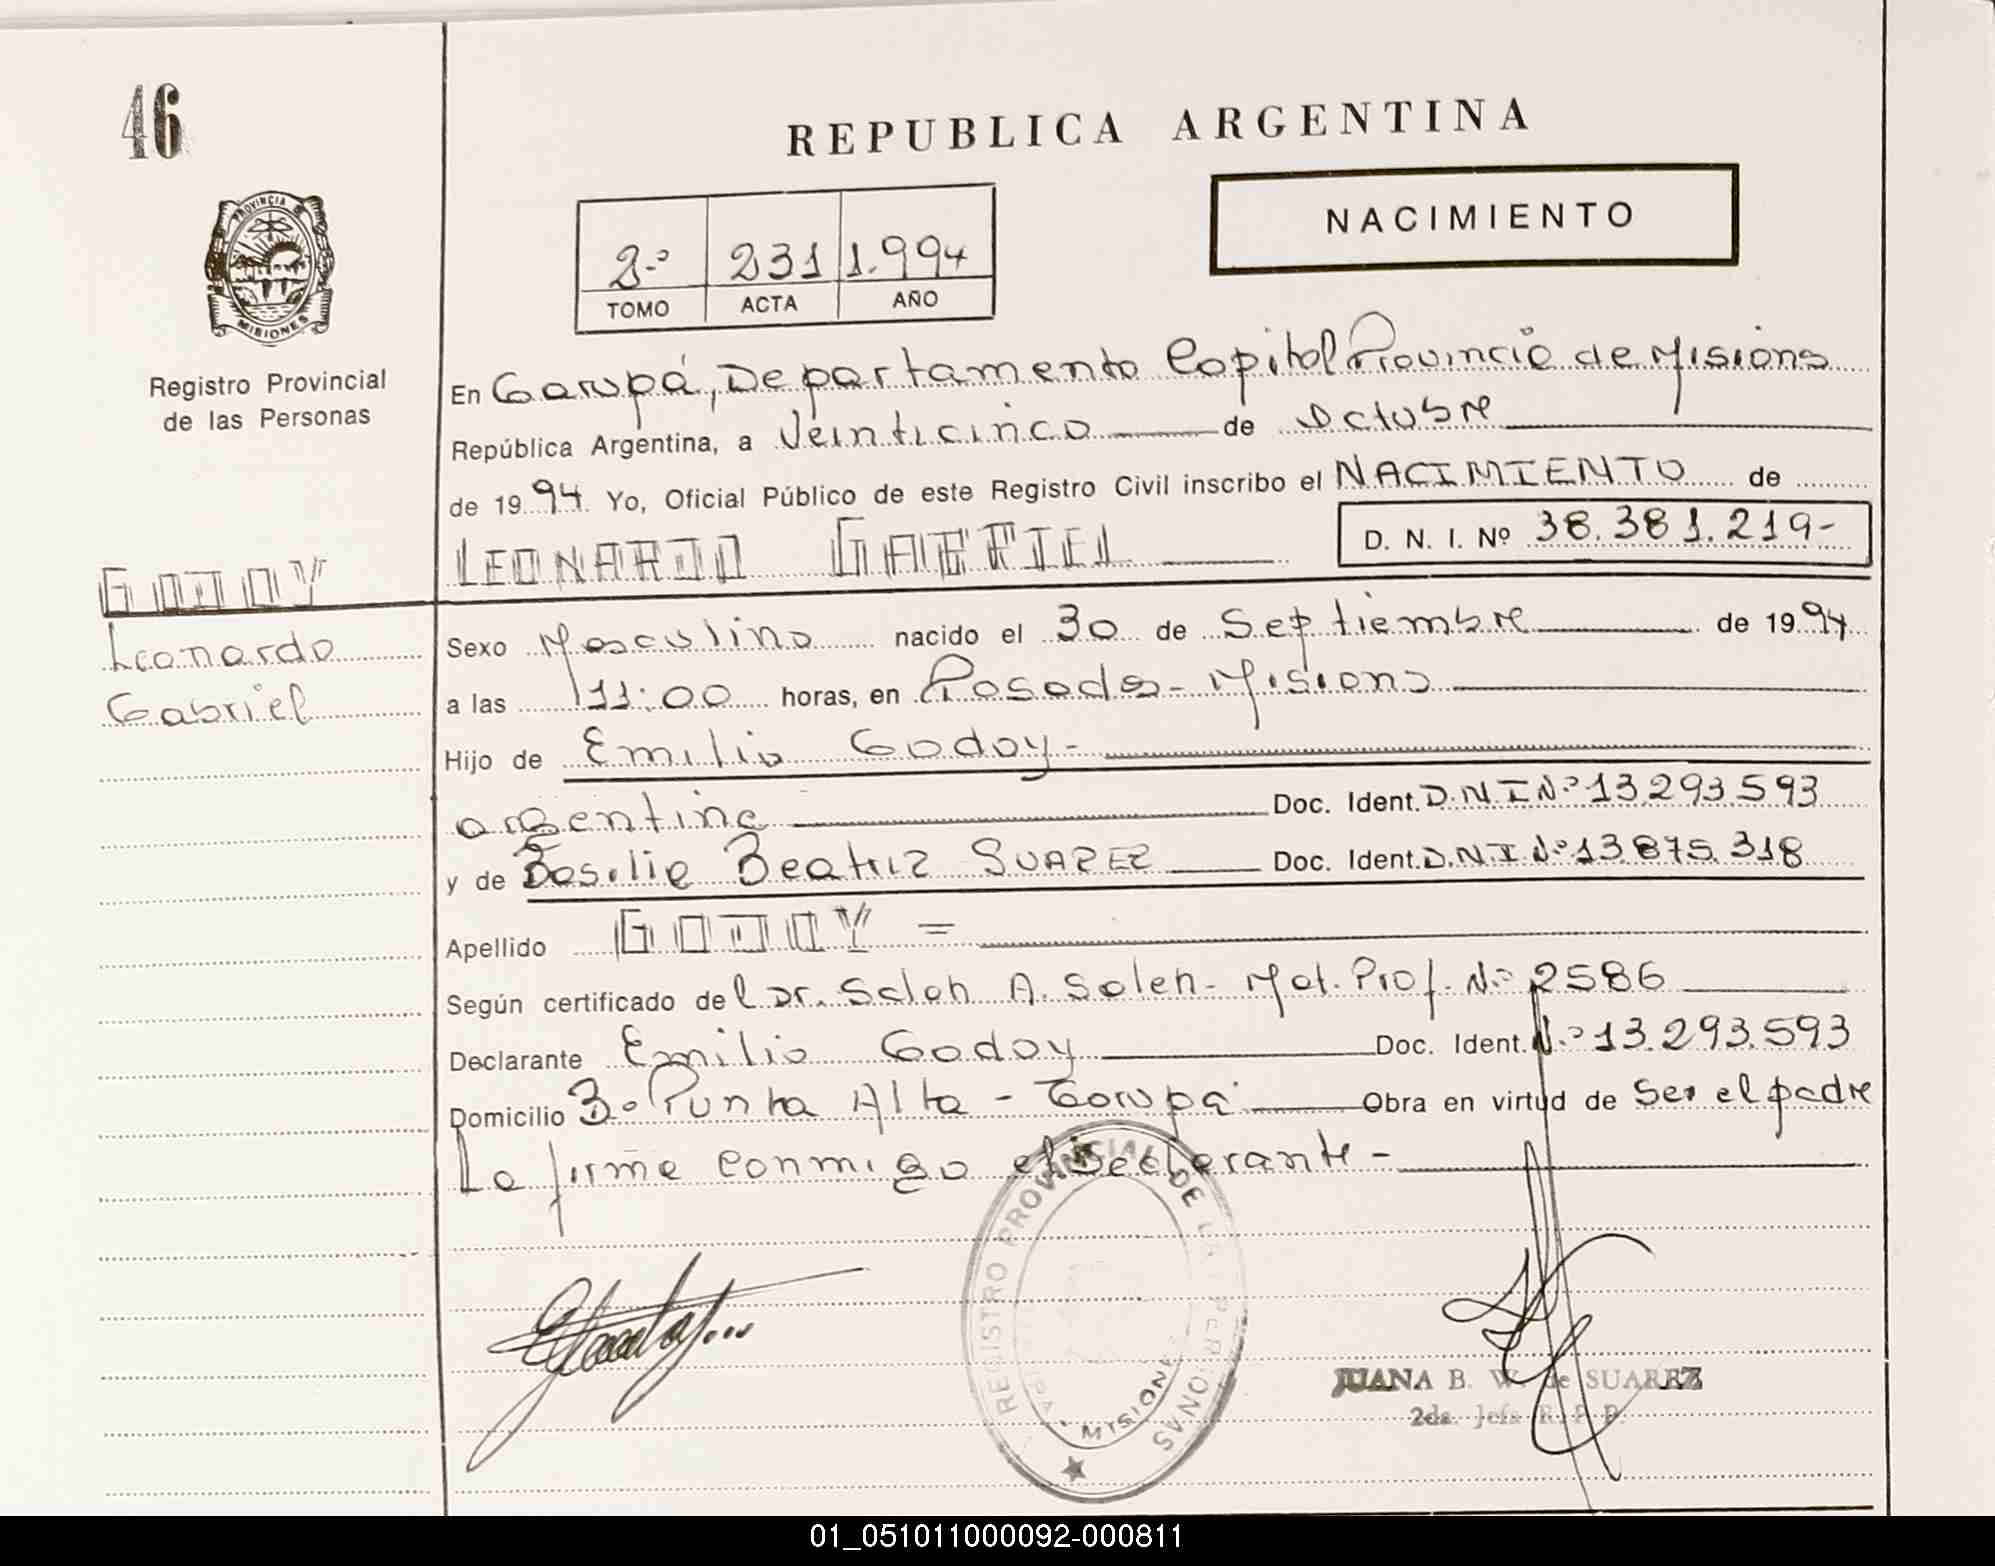 46
REPUBLICA ARGENTINA
NACIMIENTO
2.º 231 1.994
TOMO ACTA AÑO
PROVINCIA DE MISIONES
Registro Provincial
de las Personas
En Garupá, Departamento Capital Provincia de Misions
República Argentina, a Veinticinco de Octubre
de 1994 Yo, Oficial Público de este Registro Civil inscribo el NACIMIENTO de
LEONARDO GABRIEL D. N. I. Nº 38.381.219-
GODOY
Leonardo
Gabriel
Sexo Masculino nacido el 30 de Septiembre de 1994
a las 11:00 horas, en Posadas - Misions
Hijo de Emilio Godoy-
argentina Doc. Ident. D.N.I Nº 13.293.593
y de Basilia Beatriz SUAREZ Doc. Ident. D.N.I Nº 13.875.318
Apellido GODOY =
Según certificado del Dr. Saleh A. Saleh - Mat. Prof. Nº 2586
Declarante Emilio Godoy Doc. Ident. N.º 13.293.593
Domicilio Bº Punta Alta - Garupá Obra en virtud de Ser el padre
La firma conmigo el Declarante -
REGISTRO PROVINCIAL DE LAS PERSONAS
MISIONES
JUANA B. W. de SUAREZ
2da. Jefa R. P. P.
01_051011000092-000811